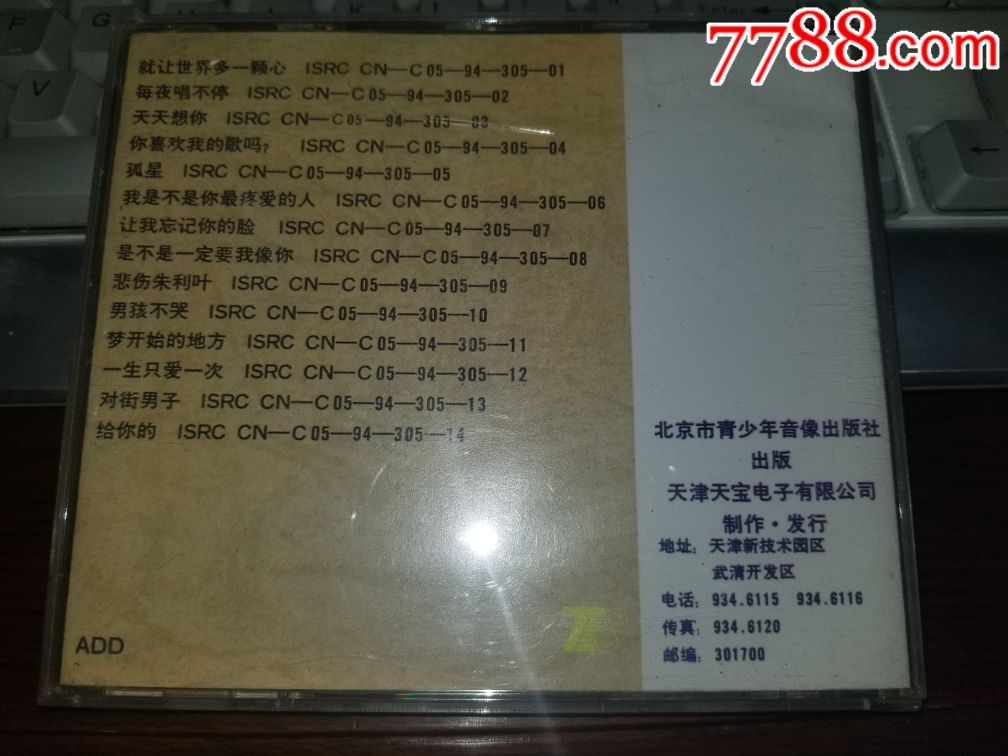 7788.com
就让世界多一颗心 ISRC CN—C05—94—305—01
每夜唱不停 ISRC CN—C05—94—305—02
天天想你 ISRC CN—C05—94—305—03
你喜欢我的歌吗? ISRC CN—C05—94—305—04
孤星 ISRC CN—C05—94—305—05
我是不是你最疼爱的人 ISRC CN—C05—94—305—06
让我忘记你的脸 ISRC CN—C05—94—305—07
是不是一定要我像你 ISRC CN—C05—94—305—08
悲伤朱利叶 ISRC CN—C05—94—305—09
男孩不哭 ISRC CN—C05—94—305—10
梦开始的地方 ISRC CN—C05—94—305—11
一生只爱一次 ISRC CN—C05—94—305—12
对街男子 ISRC CN—C05—94—305—13
给你的 ISRC CN—C05—94—305—14
ADD
北京市青少年音像出版社
出版
天津天宝电子有限公司
制作·发行
地址: 天津新技术园区
武清开发区
电话: 934.6115 934.6116
传真: 934.6120
邮编: 301700
F
V
Enter